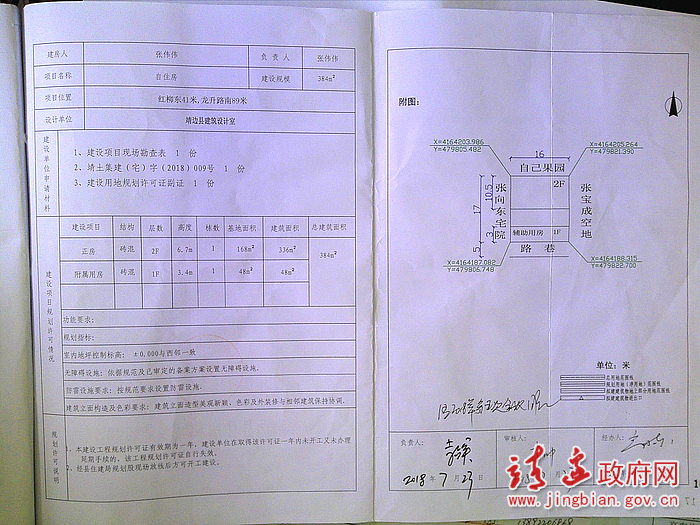 建房人 张伟伟 负责人 张伟伟
项目名称 自住房 建设规模 384m²
项目位置 红柳东41米,龙升路南89米
设计单位 靖边县建筑设计室
建设单位申请材料
1、建设项目现场勘查表 1 份
2、靖土集建（宅）字（2018）009号 1 份
3、建设用地规划许可证副证 1 份
建设项目规划许可情况
建设项目 结构 层数 高度 栋数 基地面积 建筑面积 总建筑面积
正房 砖混 2F 6.7m 1 168m² 336m² 384m²
附属用房 砖混 1F 3.4m 1 48m² 48m²
功能要求：
规划指标：
室内地坪控制标高：±0.000与西邻一致
无障碍设施：依据规范及已审定的备案方案设置无障碍设施。
防雷设施要求：按规范要求设置防雷设施。
建筑立面构造及色彩要求：建筑立面造型美观新颖、色彩及外装修与相邻建筑保持协调.
规划许可说明
1、本建设工程规划许可证有效期为一年，建设单位在取得该许可证一年内未开工又未办理
延期手续的，该工程规划许可证自行失效。
2、经县住建局规划股现场放线后方可开工建设。
附图：
X=4164203.986
Y=479805.482
X=4164205.264
Y=479821.390
16
自己果园
2F
10.5
17
3
5
张向东宅院
张宝成空地
辅助用房 1F
路巷
X=4164187.082
Y=479806.748
X=4164188.315
Y=479822.700
单位：米
总用地范围线
规划用地（净用地）范围线
拟建建筑物地上部分用地范围线
拟建建筑物出入口
负责人：
审核人：
经办人：
2018年7月23日
靖边政府网
www.jingbian.gov.cn